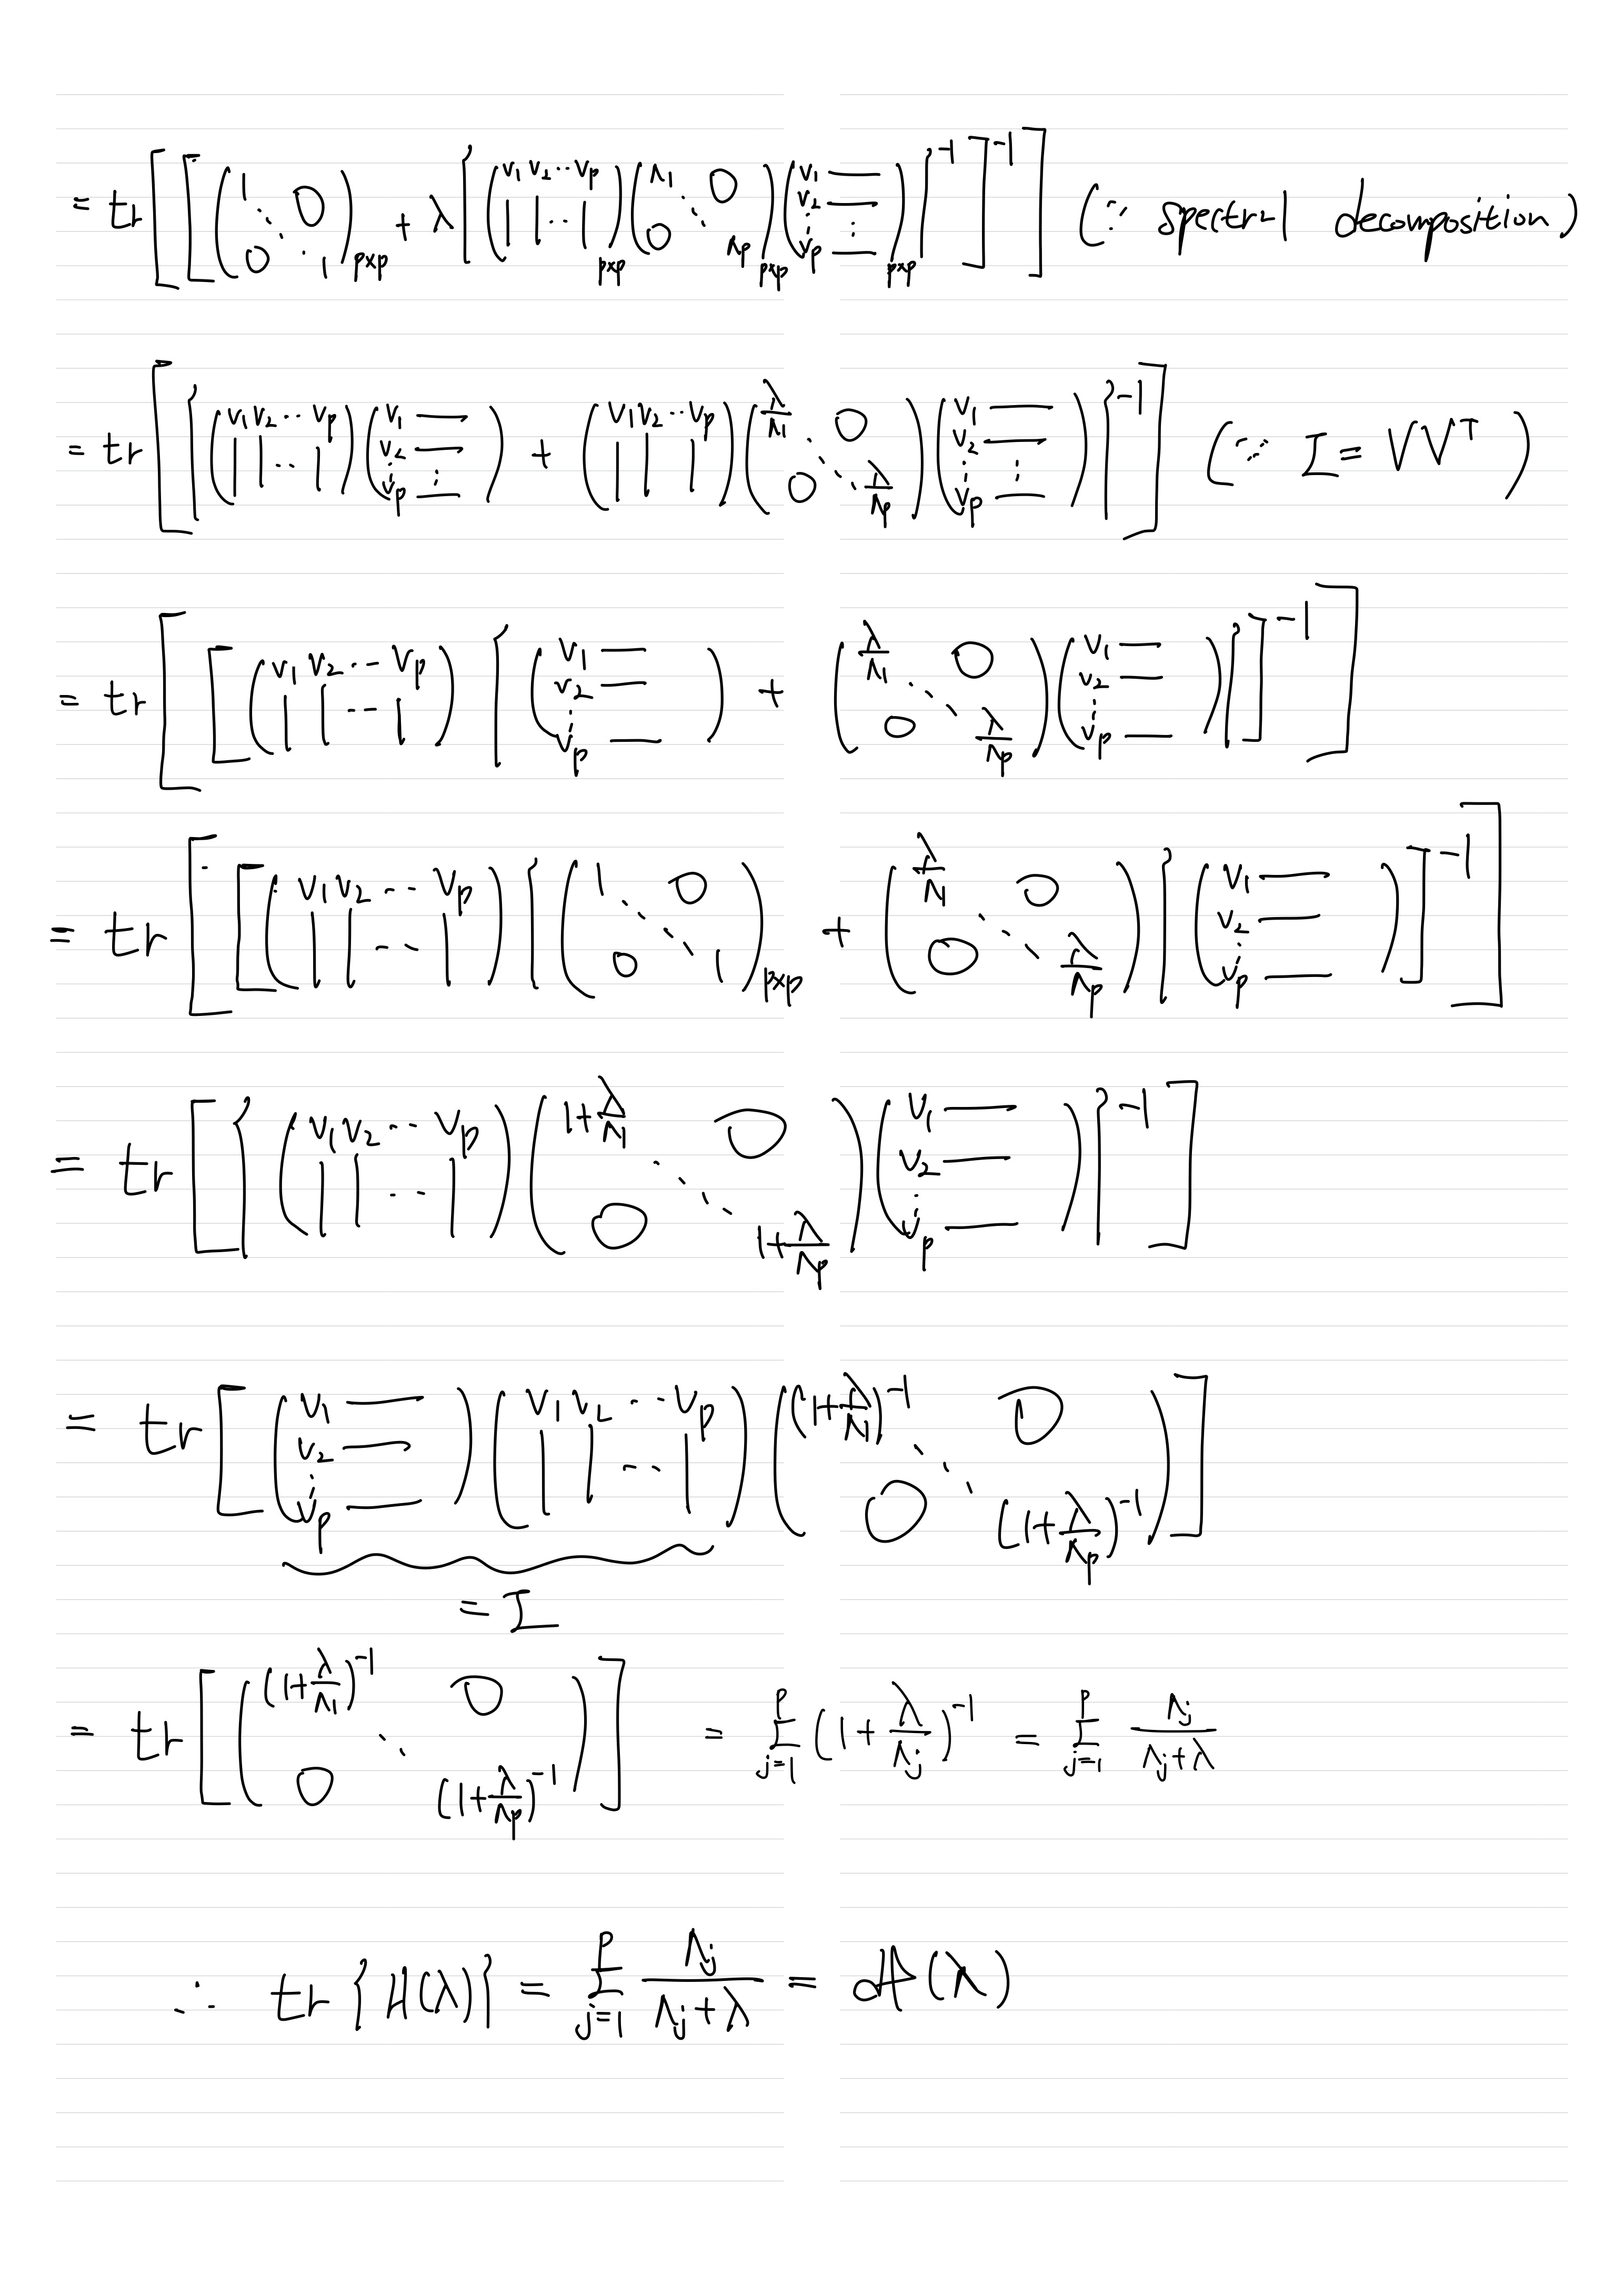 = tr [ [ ( 1 ⋱ 0 0 1 )_{p×p} + λ { ( v₁ v₂ ⋯ v_p | | ⋯ | )_{p×p} ( Λ₁ 0 ⋱ 0 Λ_p )_{p×p} ( v₁ — v₂ — ⋮ v_p — )_{p×p} }⁻¹ ]⁻¹ ] (∵ spectral decomposition)
= tr [ { ( v₁ v₂ ⋯ v_p | | ⋯ | ) ( v₁ — v₂ — ⋮ v_p — ) + ( v₁ v₂ ⋯ v_p | | | ) ( λ/Λ₁ 0 ⋱ 0 λ/Λ_p ) ( v₁ — v₂ — ⋮ v_p — ) }⁻¹ ] (∵ I = VVᵀ)
= tr [ [ ( v₁ v₂ ⋯ v_p | | ⋯ | ) { ( v₁ — v₂ — ⋮ v_p — ) + ( λ/Λ₁ 0 ⋱ 0 λ/Λ_p ) ( v₁ — v₂ — ⋮ v_p — ) } ]⁻¹ ]
= tr [ [ ( v₁ v₂ ⋯ v_p | | ⋯ | ) { ( 1 0 ⋱ 0 1 )_{p×p} + ( λ/Λ₁ 0 ⋱ 0 λ/Λ_p ) } ( v₁ — v₂ — ⋮ v_p — ) ]⁻¹ ]
= tr [ { ( v₁ v₂ ⋯ v_p | | ⋯ | ) ( 1+λ/Λ₁ 0 ⋱ 0 1+λ/Λ_p ) ( v₁ — v₂ — ⋮ v_p — ) }⁻¹ ]
= tr [ ( v₁ — v₂ — ⋮ v_p — ) ( v₁ v₂ ⋯ v_p | | ⋯ | ) ( (1+λ/Λ₁)⁻¹ 0 ⋱ 0 (1+λ/Λ_p)⁻¹ ) ]
= I
= tr [ ( (1+λ/Λ₁)⁻¹ 0 ⋱ 0 (1+λ/Λ_p)⁻¹ ) ] = Σ_{j=1}^{p} (1+λ/Λ_j)⁻¹ = Σ_{j=1}^{p} Λ_j/(Λ_j+λ)
∴ tr {H(λ)} = Σ_{j=1}^{p} Λ_j/(Λ_j+λ) = df(λ)